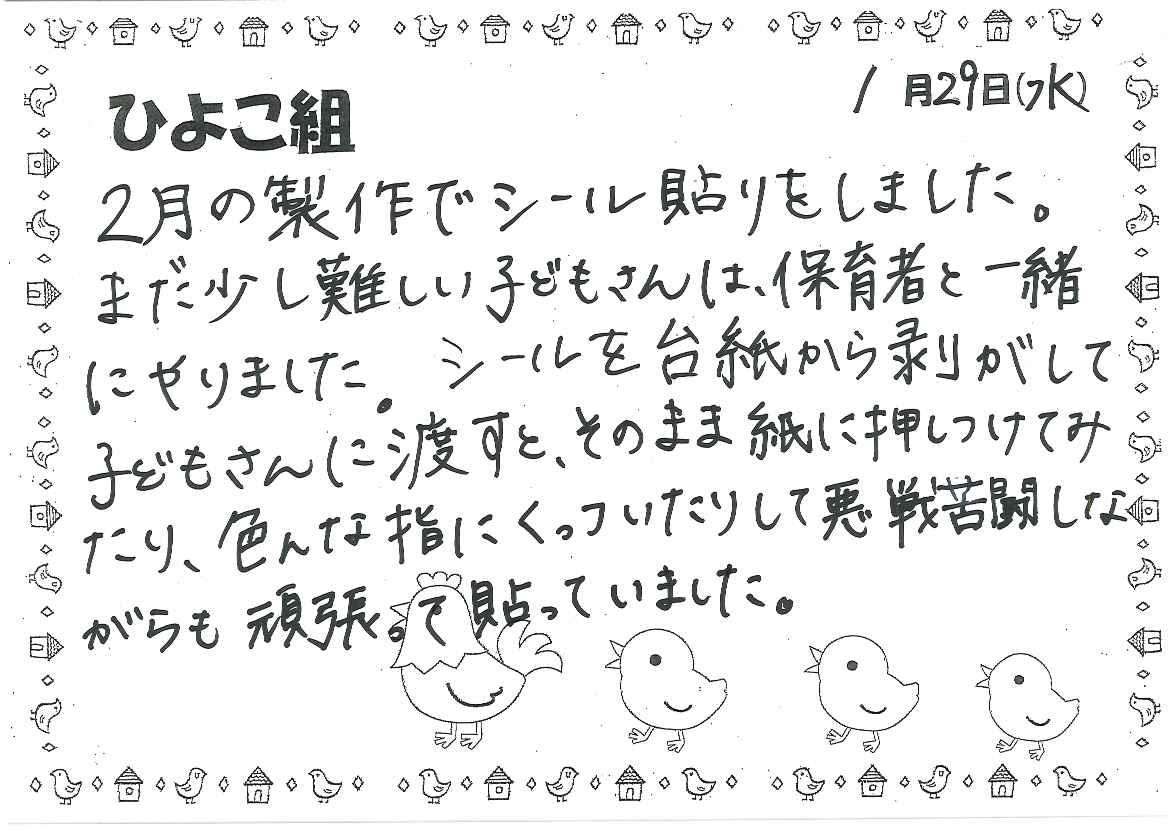 1月29日(水)
ひよこ組
2月の製作でシール貼りをしました。
まだ少し難しい子どもさんは、保育者と一緒
にやりました。シールを台紙から剥がして
子どもさんに渡すと、そのまま紙に押しつけてみ
たり、色んな指にくっついたりして悪戦苦闘しな
がらも頑張って貼っていました。